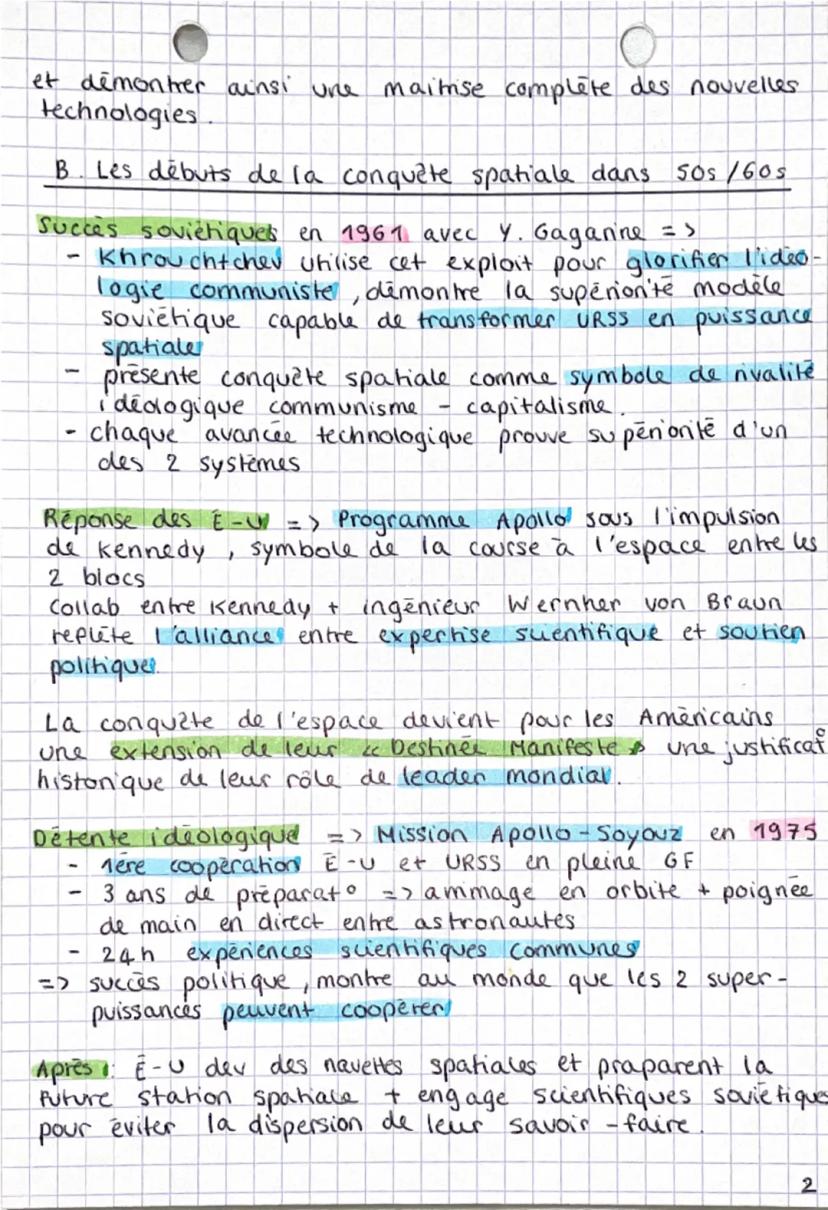 et démontrer ainsi une maitrise complète des nouvelles
technologies.
B. Les débuts de la conquête spatiale dans 50s/60s
Succès soviétiques en 1961 avec Y. Gagarine =>
- Khrouchtchev utilise cet exploit pour glorifier l'idéo-
logie communiste, démontre la supériorité modèle
soviétique capable de transformer URSS en puissance
spatiale
- présente conquête spatiale comme symbole de rivalité
idéologique communisme - capitalisme.
- chaque avancée technologique prouve supériorité d'un
des 2 systèmes
Réponse des É-U => Programme Apollo sous l'impulsion
de Kennedy, symbole de la course à l'espace entre les
2 blocs
Collab entre Kennedy + ingénieur Wernher von Braun
reflète l'alliance entre expertise scientifique et soutien
politique.
La conquête de l'espace devient pour les Américains
une extension de leur « Destinée Manifeste » une justificat°
historique de leur rôle de leader mondial.
Détente idéologique => Mission Apollo-Soyouz en 1975
- 1ère coopération É-U et URSS en pleine GF
- 3 ans de préparat° => ammage en orbite + poignée
de main en direct entre astronautes
- 24h expériences scientifiques communes
=> succès politique, montre au monde que les 2 super-
puissances peuvent coopérer
Après : É-U dev des navettes spatiales et praparent la
future station spatiale + engage scientifiques soviétiques
pour éviter la dispersion de leur savoir-faire.
2